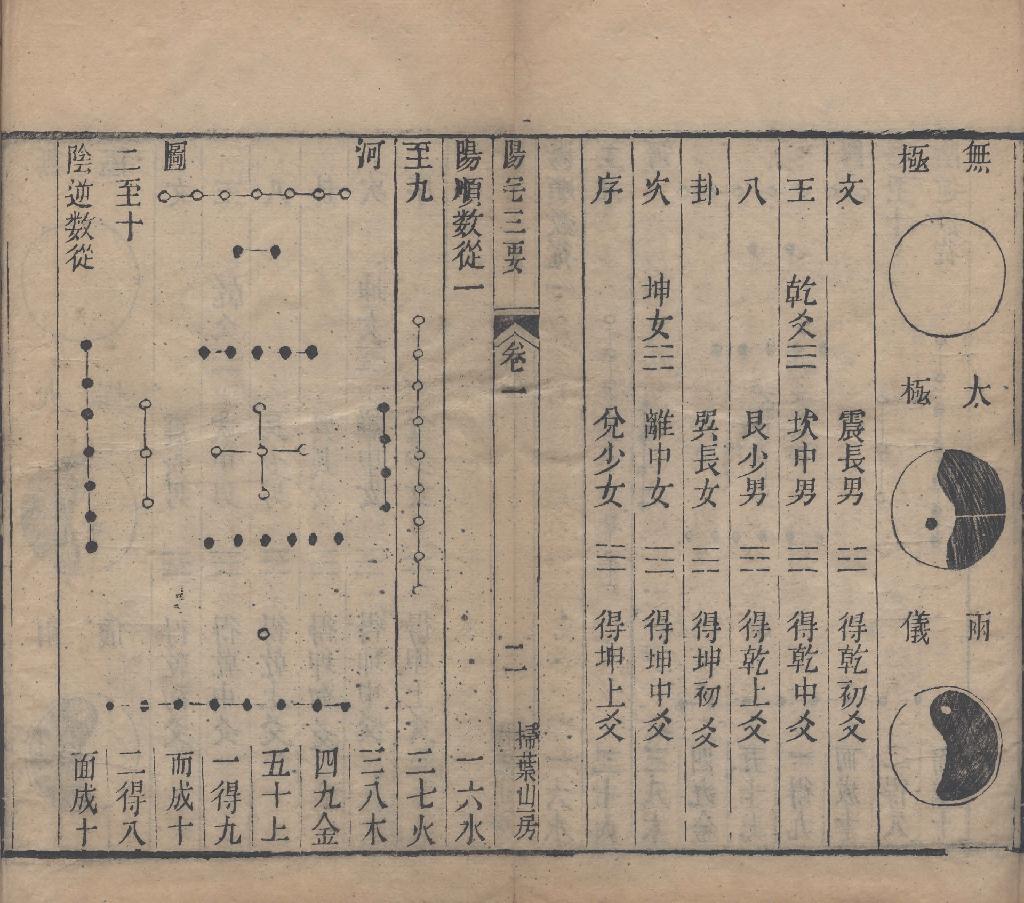 無極
太極
兩儀
文王八卦次序
乾父☰
震長男☳得乾初爻
坎中男☵得乾中爻
艮少男☶得乾上爻
坤女☷
巽長女☴得坤初爻
離中女☲得坤中爻
兌少女☱得坤上爻
陽宅三要
卷一
二
掃葉山房
陽順数從一
至九
河圖
二至十
陰逆数從
一六水
二七火
三八木
四九金
五十上
一得九
而成十
二得八
面成十